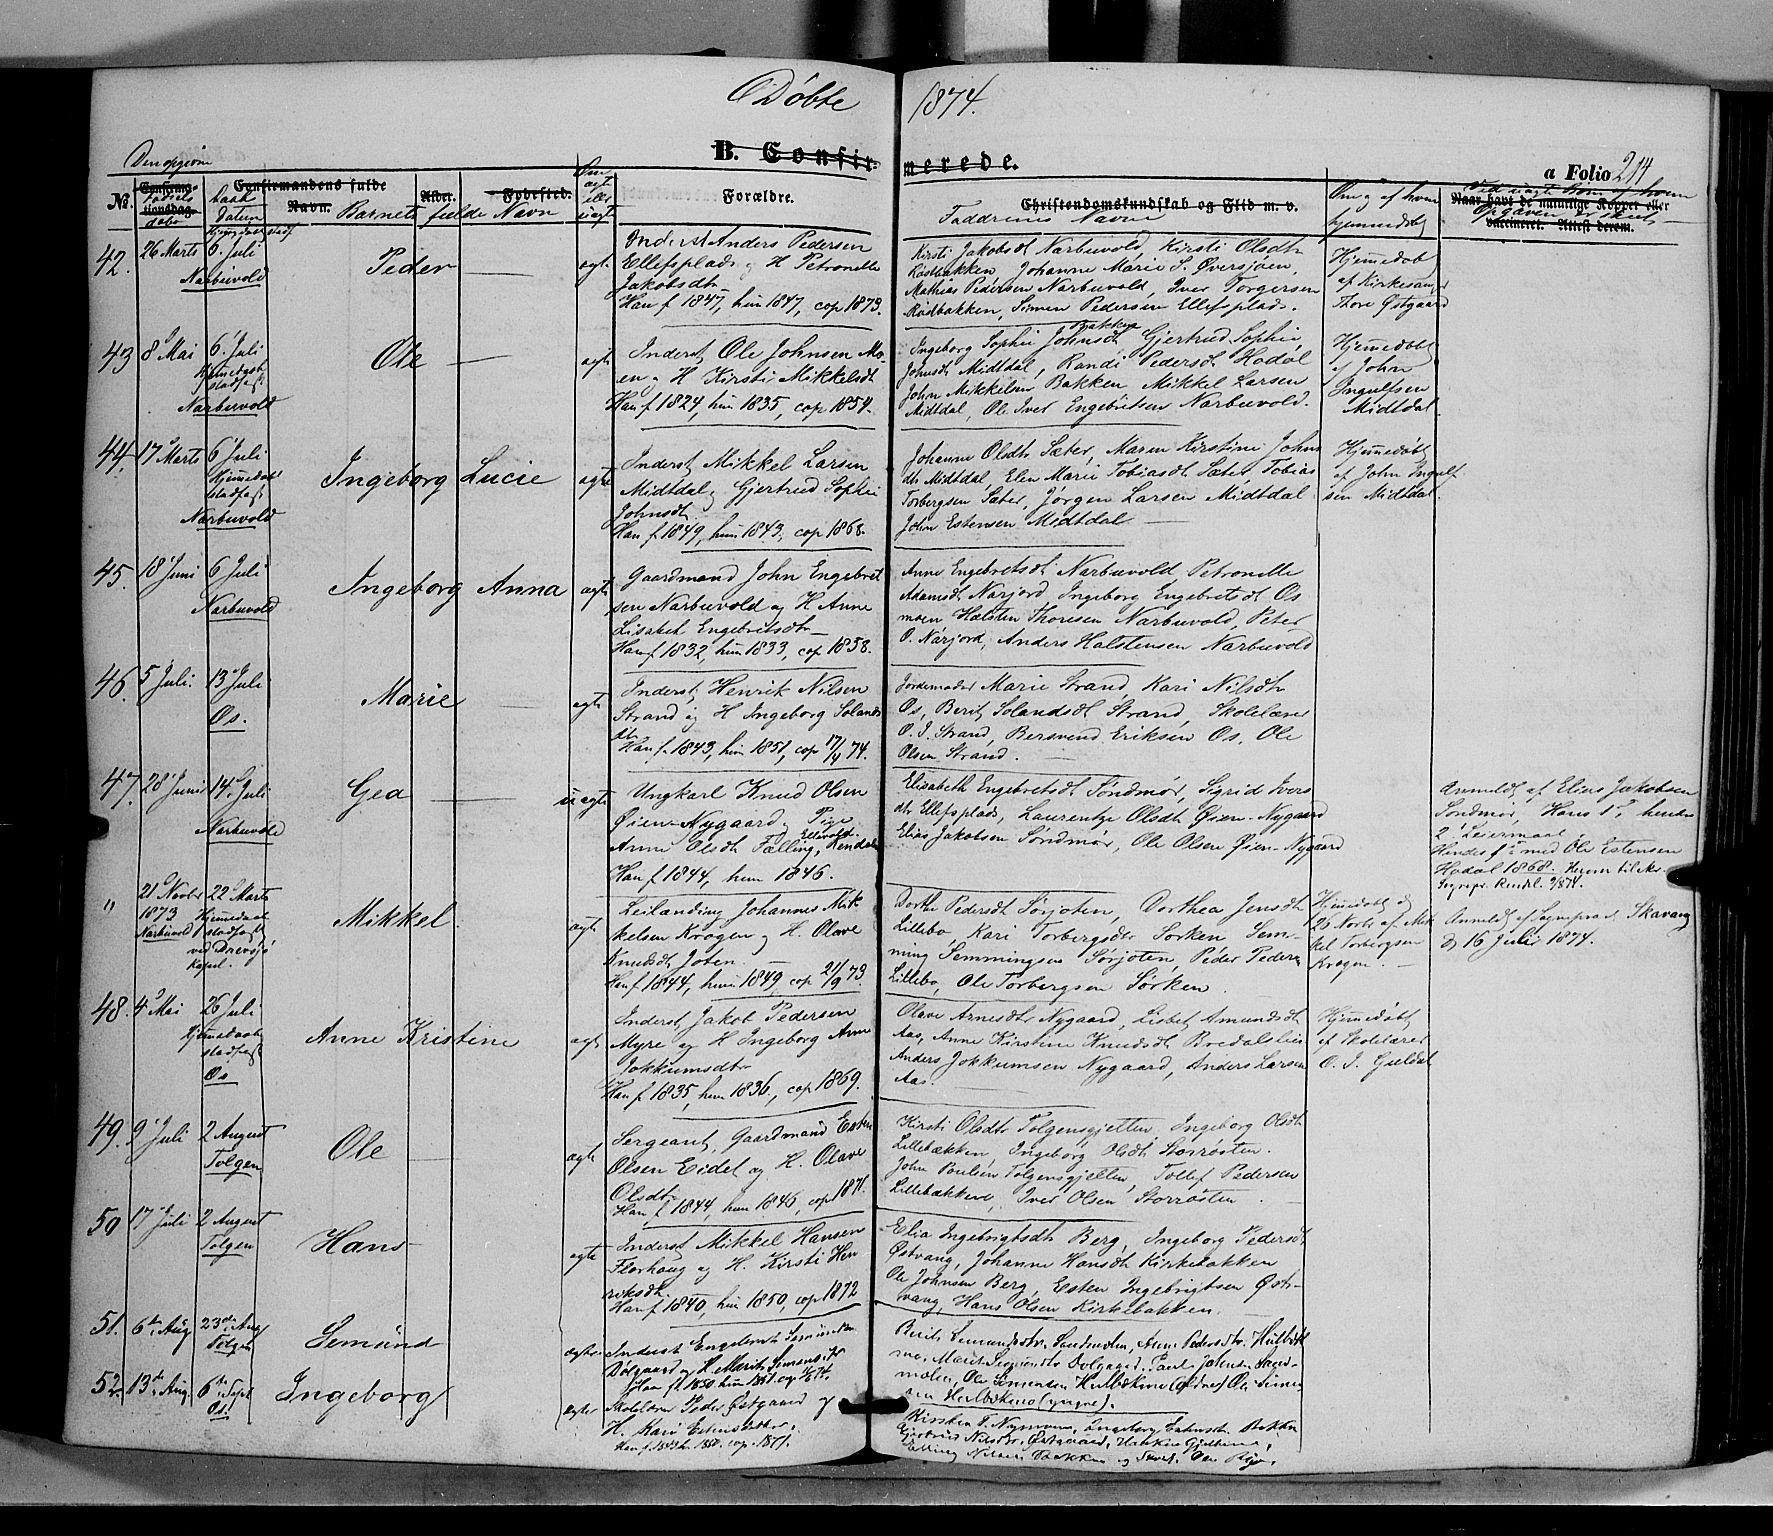 Døbte 1874.
B. Confirmerede.
a Folio 214
Den opgivne
No.
Confirmationsdag.
Fødsels
dato
Daab
Datum
Confirmandens fulde Navn.
Barnets fulde Navn
Alder.
Fødested.
Om ægte eller uægte
Forældre.
Christendomskundskab og Flid m. v.
Faddrenes Navne
Om og af hvem hjemmedøbt
Naar havt de naturlige Kopper eller vaccineret. Attest derom.
42. 26 Marts
6 Juli
Narbuvold
Peder
ægte
Inderst Anders Pedersen
Ellefsplads og H Petronelle
Jakobsdtr
Han f 1847, hun 1847, cop 1873.
Kirsti Jakobsdt Narbuvold, Kirsti Olsdtr
Rødbakken, Johanne Marie S. Øversjøen,
Mathias Pedersen Narbuvold, Iver Torgersen
Rødbakken, Simen Pedersen Ellefsplads.
Hjemmedøbt
af Kirkesanger
Thore Østgaard
43 8 Mai
6 Juli
Hjemmedaab
stadfæst
Narbuvold
Ole
ægte
Inderst Ole Johnsen Mo-
en og H Kirsti Mikkelsdt
Han f 1824, hun 1835, cop 1854.
Ingeborg Sophie Johnsdt Bakken Gjertrud Sophie
Johnsdt Midtdal, Randi Pedersdt Hodal
John Mikkelsen Bakken Mikkel Larsen
Midtdal, Ole Iver Engebritsen Narbuvold.
Hjemmedøbt
af John
Ingulfsen
Midtdal.
44. 17 Marts
6 Juli
Hjemmedaab
stadfæst
Narbuvold
Ingeborg Lucie
ægte
Inderst Mikkel Larsen
Midtdal og Gjertrud Sophie
Johnsdt
Han f 1849, hun 1843, cop 1868.
Johanne Olsdtr Sæter, Maren Kirstine Johns
dtr Midtdal, Elen Marie Tobiasdt Sæter, Tobias
Torbergsen Sæter, Jørgen Larsen Midtdal
John Estensen Midtdal
Hjemmedøbt
af John Ingulf
sen Midtdal.
45. 18 Juni
6 Juli
Narbuvold
Ingeborg Anna
ægte
Gaardmand John Engebret
sen Narbuvold og H Anne
Lisabet Engebretsdtr
Han f 1832, hun 1833, cop 1858.
Anne Engebretsdt Narbuvold Petronelle
Adamsdt Narjord, Ingeborg Engebretsdt Os
moen Halsten Thoresen Narbuvold, Peter
O. Narjord, Anders Halstensen Narbuvold
46. 5 Juli.
13 Juli
Os.
Marie
ægte
Inderst Henrik Nilsen
Strand og H Ingeborg Solands
dtr
Han f. 1843, hun 1851, cop 17/4 74.
Jordemoder Marie Strand, Kari Nilsdtr
Os, Berit Solandsdt Strand, Skolelærer
O. J. Strand, Bersvend Eriksen Os, Ole
Olsen Strand.
47. 28 Juni
14 Juli
Narbuvold
Gea
uægte
Ungkarl Knud Olsen
Øien-Nygaard, Pige
Anne Olsdt Fælling, Ellevold. Rendalen
Han f 1844, hun 1846.
Elisabeth Engebretsdt Søndmør, Sigrid Ivers
dtr Ellefsplads, Laurentze Olsdt Øien-Nygaard
Elias Jakobsen Søndmør, Ole Olsen Øien-Nygaard
Anmeldt af Elias Jakobsen
Søndmør, Hans 1ste, hendes
2det Leiermaal
Hendes 1ste med Ole Estensen
Hodal 1868.
" 21 Novbr
1873
Narbuvold
22 Marts
Hjemmedaab
stadfæst
ved Drevsjø
Kapel.
Mikkel
ægte
Leilænding Johannes Mik
kelsen Krogen og H. Olave
Knudsdt Joten.
Han f 1844, hun 1849, cop 21/9 73.
Dorthe Pedersdt Sørjoten, Dorthea Jensdt
Lillebo, Kari Torbergsdtr Sorken Sem-
ming Semmingsen Sørjoten, Peder Peders
Lillebo, Ole Torbergsen Sørken.
Hjemmedøbt
26 Novbr af Mik
kel Torbergsen
Krogen.
Anmeldt af Sognepræst Skavang
d 16 Juli 1874.
48. 4 Mai
26 Juli
Hjemmedaab
stadfæst
Os
Anne Kristine
ægte
Inderst Jakob Pedersen
Myre og H Ingeborg Anne
Jokkumsdtr
Han f 1835, hun 1836, cop 1869.
Olave Arnesdtr Nygaard, Lisbet Amundsdt
Aas, Anne Kirstine Knudsdt Bredalslien
Anders Jokkumsen Nygaard, Anders Larsen
Aas.
Hjemmedøbt
af Skolelærer
O. J. Gjeldal
49. 9 Juli
2 August
Tolgen
Ole
ægte
Sergeant, Gaardmand Esten
Olsen Eidet og H. Olave
Olsdtr
Han f 1844, hun 1846, cop 1871.
Kirsti Olsdtr Tolgensgjelten, Ingeborg Olsdt
Lillebækken, Ingeborg Olsdt Storrøsten.
John Paulsen Tolgensgjelten, Tollef Pedersen
Lillebækken, Iver Olsen Storrøsten.
50 17 Juli
2 August
Tolgen
Hans
ægte
Inderst Mikkel Hansen
Florhaug og H. Kirsti Hen
riksdt.
Han f 1840, hun 1850, cop 1872
Elia Ingebrigtsdt Berg, Ingeborg Pedersdt
Østvang, Johanne Hansdt Kirkebakken
Ole Johnsen Berg, Esten Ingebrigtsen Øst-
vang, Hans Olsen Kirkebakken.
51. 6te Aug
23de Aug
Tolgen
Semund
ægte
Inderst Engebret Semundsen
Dølgaard og H. Marit Simensdtr
Berit Semundsdtr. Sandmolen, Anne Pedersdtr. Hulbæk
mo, Marit Semundsdtr Dølgaard. Paul Johns. Sand-
molen, Ole Simensen Hulbækmo (ældre) Ole Simen-
sen Hulbækmo (yngre).
52. 13de Aug.
6te Sept
Os.
Ingeborg
ægte
Skolelærer Peder Østgaard og
H. Kari Estensdatter.